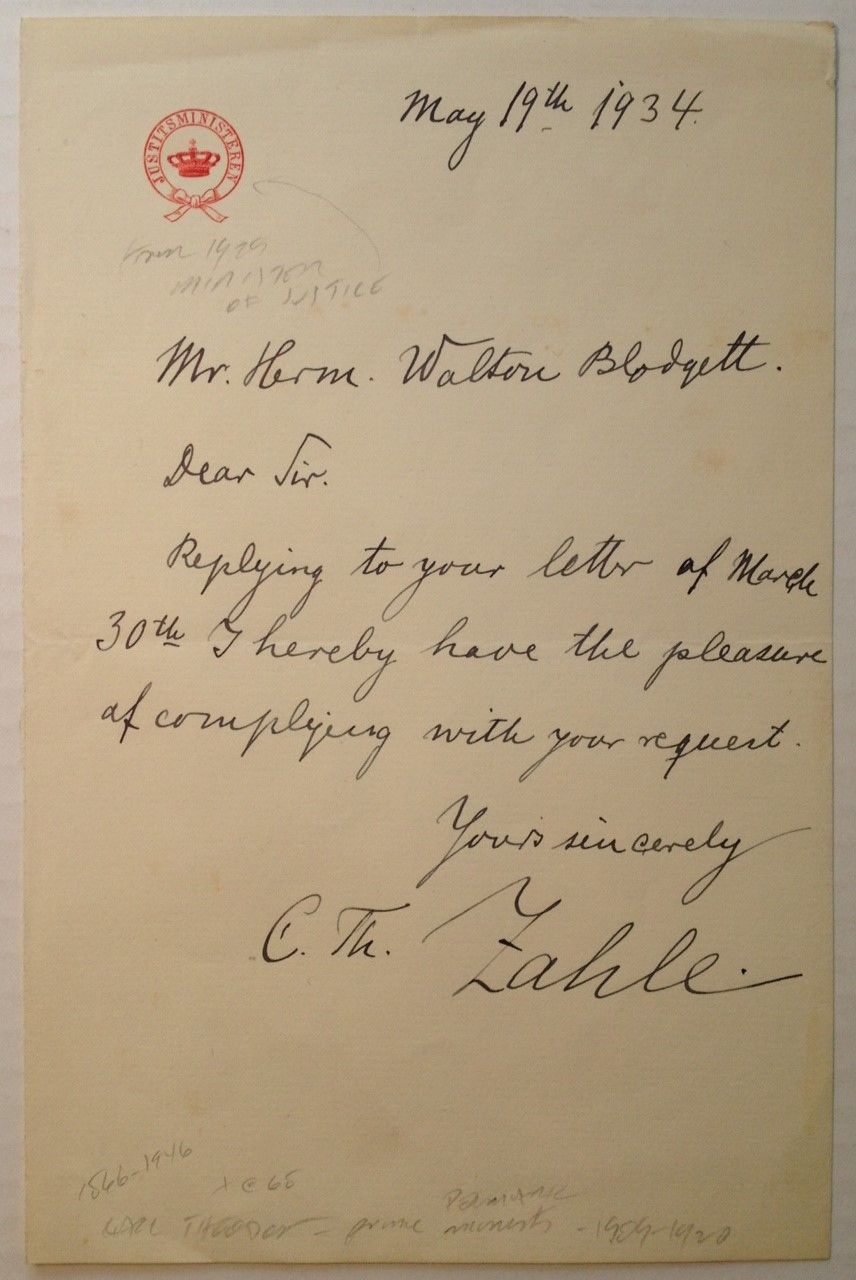 May 19th 1934.
JUSTITSMINISTEREN
From 1929
MINISTER
OF JUSTICE
Mr. Herm. Walton Blodgett.
Dear Sir.
Replying to your letter of March
30th I hereby have the pleasure
of complying with your request.
Yours sincerely
C. Th. Zahle.
1866-1946
@ 65
THEODOR - prime minister - 1909-1920